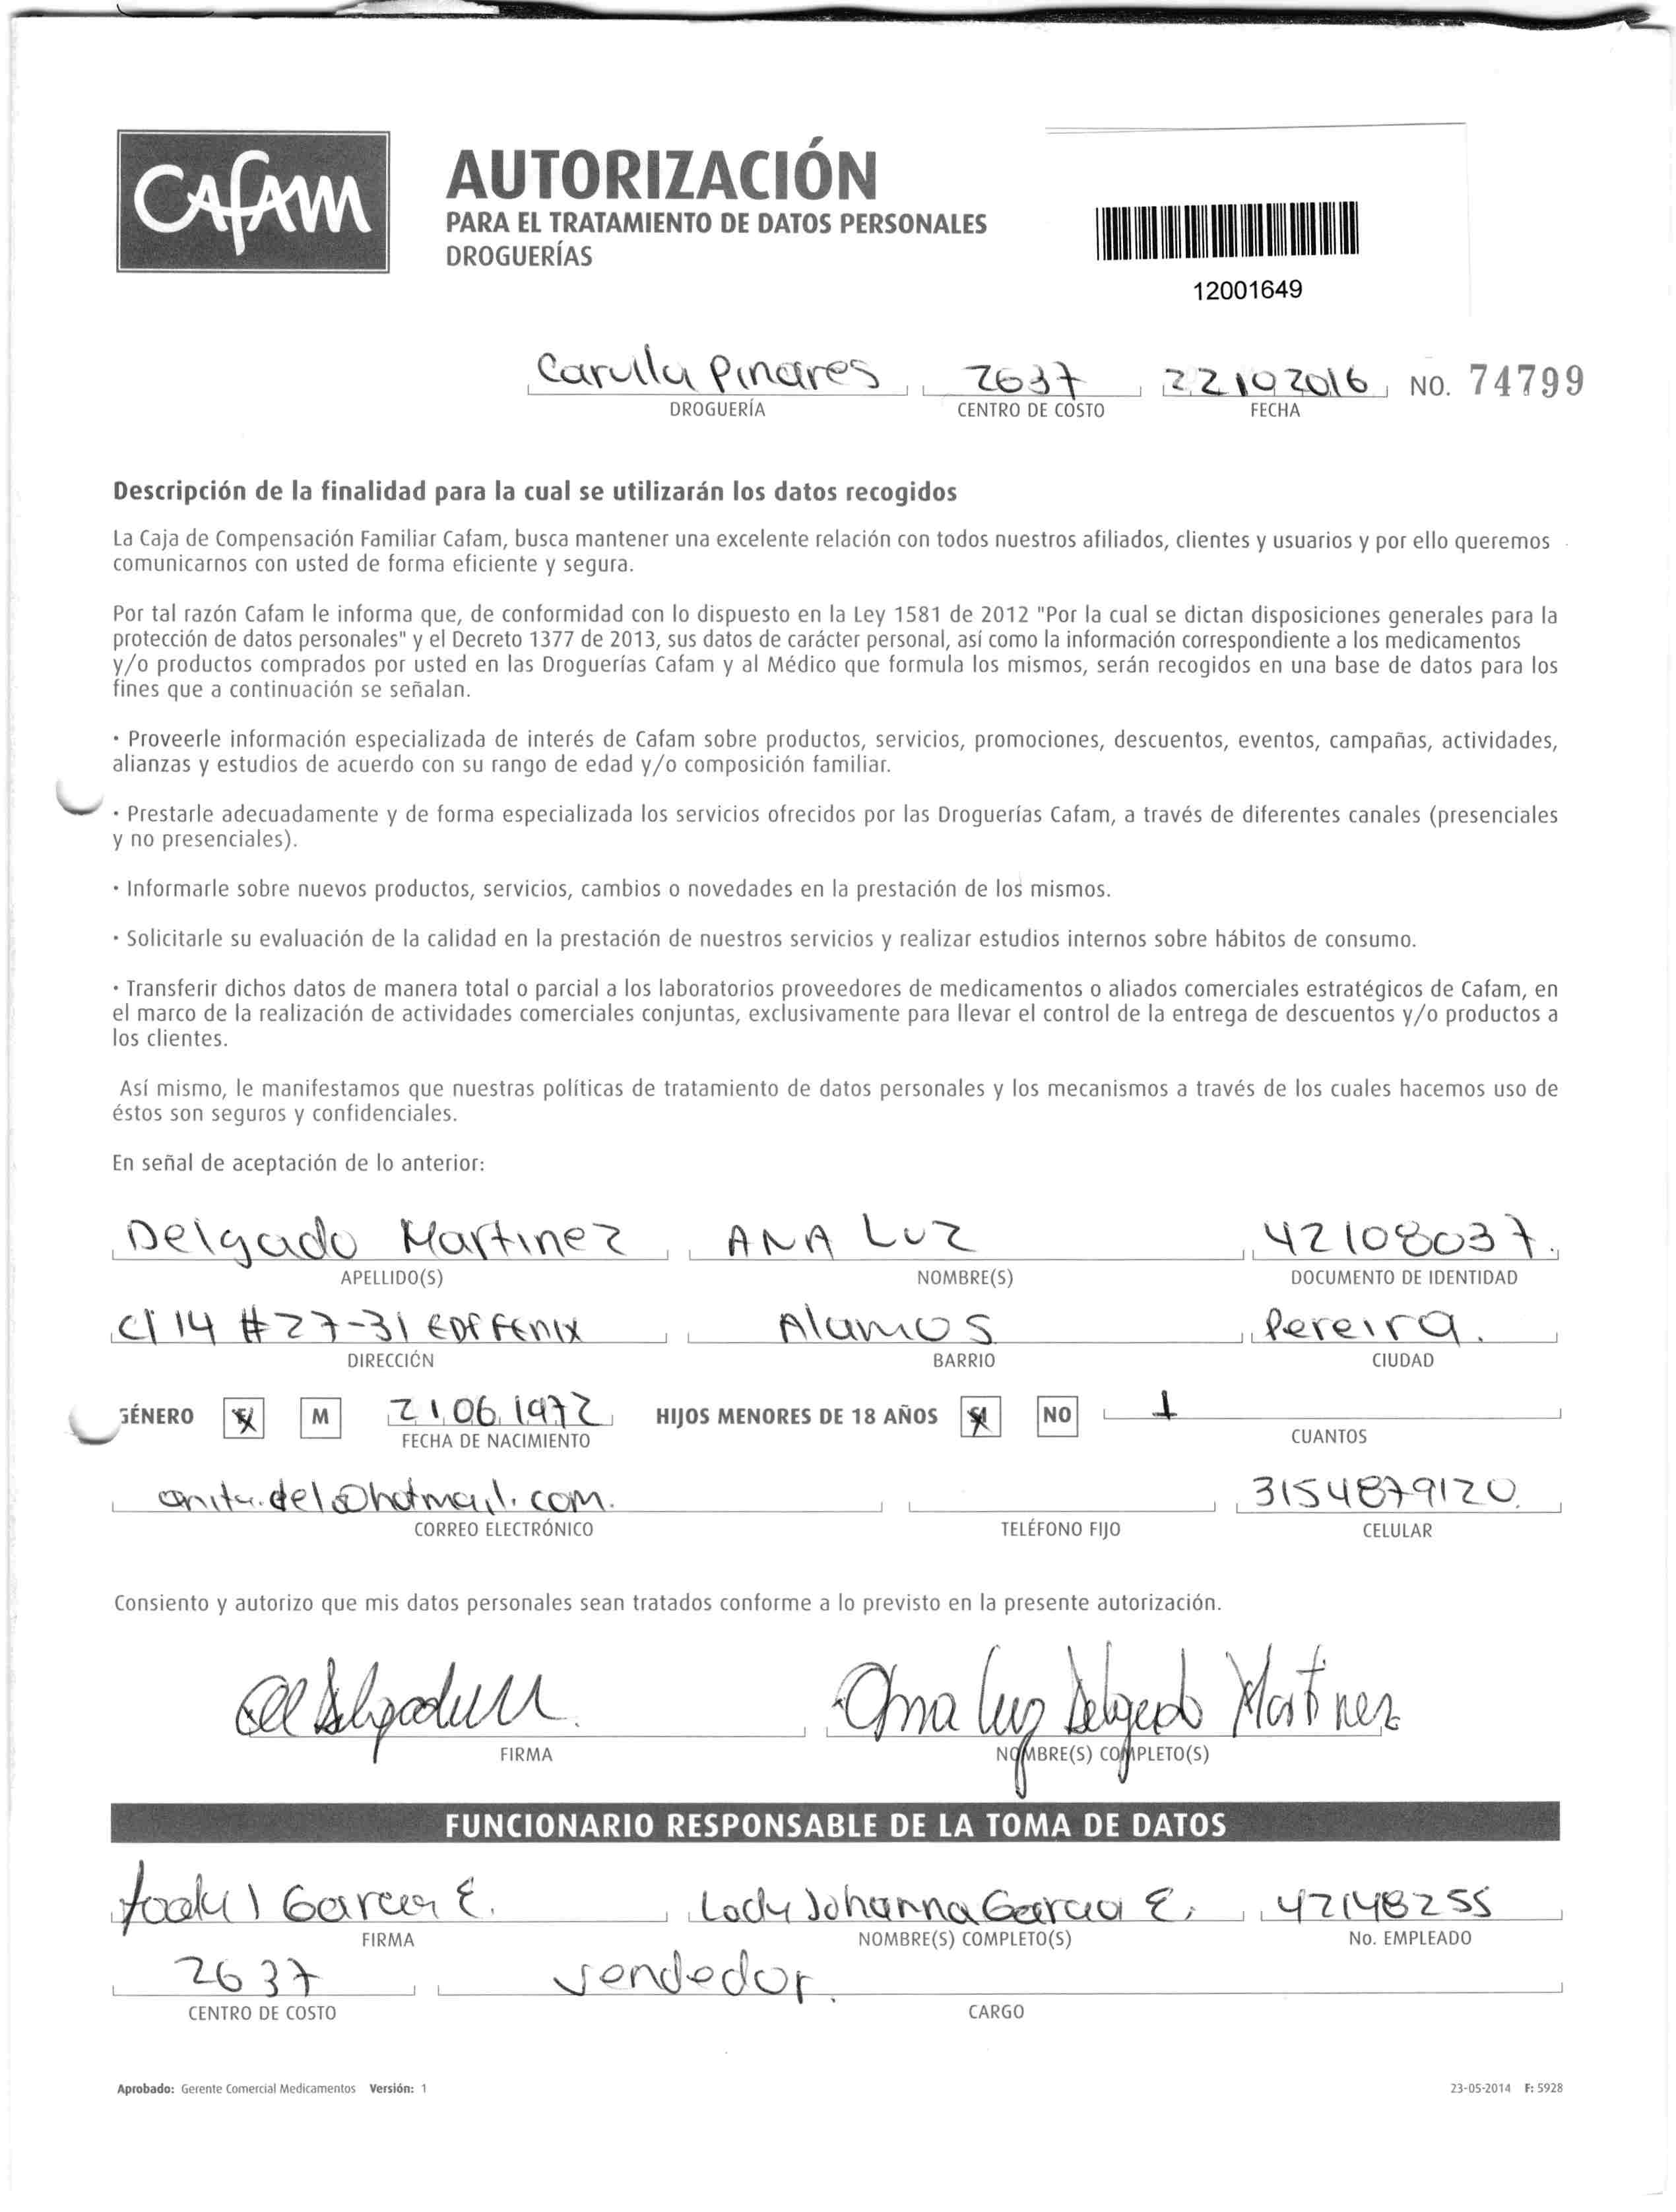 CAFAM
AUTORIZACIÓN
PARA EL TRATAMIENTO DE DATOS PERSONALES
DROGUERÍAS
12001649
Carulla Pinares 2637 22 10 2016 NO. 74799
DROGUERÍA CENTRO DE COSTO FECHA
Descripción de la finalidad para la cual se utilizarán los datos recogidos
La Caja de Compensación Familiar Cafam, busca mantener una excelente relación con todos nuestros afiliados, clientes y usuarios y por ello queremos
comunicarnos con usted de forma eficiente y segura.
Por tal razón Cafam le informa que, de conformidad con lo dispuesto en la Ley 1581 de 2012 "Por la cual se dictan disposiciones generales para la
protección de datos personales" y el Decreto 1377 de 2013, sus datos de carácter personal, así como la información correspondiente a los medicamentos
y/o productos comprados por usted en las Droguerías Cafam y al Médico que formula los mismos, serán recogidos en una base de datos para los
fines que a continuación se señalan.
· Proveerle información especializada de interés de Cafam sobre productos, servicios, promociones, descuentos, eventos, campañas, actividades,
alianzas y estudios de acuerdo con su rango de edad y/o composición familiar.
· Prestarle adecuadamente y de forma especializada los servicios ofrecidos por las Droguerías Cafam, a través de diferentes canales (presenciales
y no presenciales).
· Informarle sobre nuevos productos, servicios, cambios o novedades en la prestación de los mismos.
· Solicitarle su evaluación de la calidad en la prestación de nuestros servicios y realizar estudios internos sobre hábitos de consumo.
· Transferir dichos datos de manera total o parcial a los laboratorios proveedores de medicamentos o aliados comerciales estratégicos de Cafam, en
el marco de la realización de actividades comerciales conjuntas, exclusivamente para llevar el control de la entrega de descuentos y/o productos a
los clientes.
Así mismo, le manifestamos que nuestras políticas de tratamiento de datos personales y los mecanismos a través de los cuales hacemos uso de
éstos son seguros y confidenciales.
En señal de aceptación de lo anterior:
Delgado Martinez ANA LUZ 42108037.
APELLIDO(S) NOMBRE(S) DOCUMENTO DE IDENTIDAD
Cl 14 # 27-31 EDF FENIX Alamos Pereira.
DIRECCIÓN BARRIO CIUDAD
GÉNERO F M 21 06 1972 HIJOS MENORES DE 18 AÑOS SI NO 1
FECHA DE NACIMIENTO CUANTOS
anita.del@hotmail.com. 3154879120.
CORREO ELECTRÓNICO TELÉFONO FIJO CELULAR
Consiento y autorizo que mis datos personales sean tratados conforme a lo previsto en la presente autorización.
Ana Luz Delgado Martinez
FIRMA NOMBRE(S) COMPLETO(S)
FUNCIONARIO RESPONSABLE DE LA TOMA DE DATOS
Garcia E. Lady Johanna Garcia E. 42148255
FIRMA NOMBRE(S) COMPLETO(S) No. EMPLEADO
2637 vendedor.
CENTRO DE COSTO CARGO
Aprobado: Gerente Comercial Medicamentos Versión: 1 23-05-2014 F: 5928